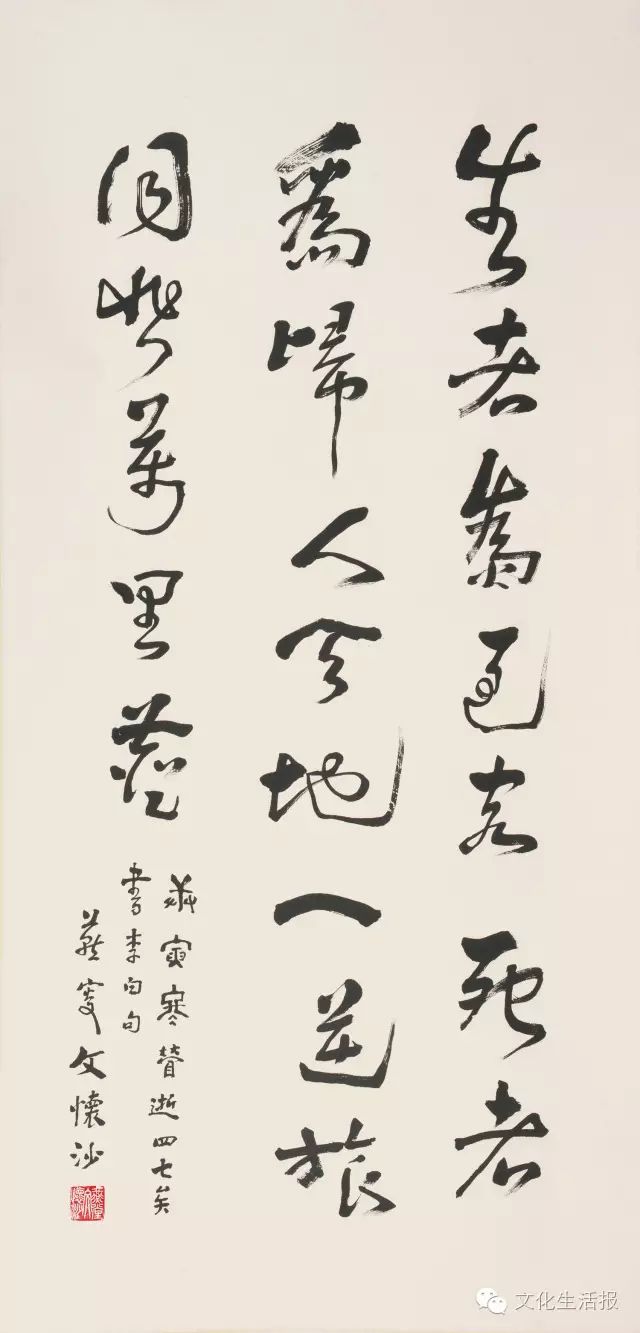 生者為過客死者
為歸人天地一逆旅
同悲萬里
寅寒逝四七矣
書李白句
燕叟文懷沙
文化生活报